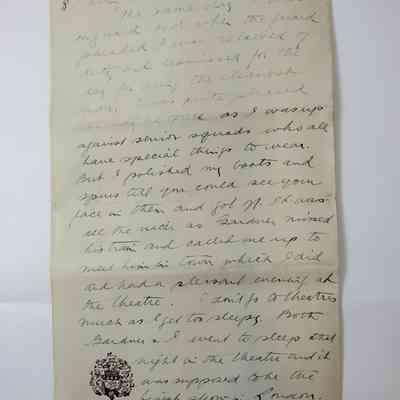 8
The same day
my guard and when the guard
paraded I was relieved of
duty and dismissed for the
day for being the cleanest
man. I was quite pleased
as I was up
against senior squads who all
have special things to wear.
But I polished my boots and
spurs till you could see your
face in them and got off. It was
all the nicer as Gardner missed
his train and called me up to
meet him in town which I did
and had a pleasant evening at
the theatre. I don't go to theatres
much as I get too sleepy. Both
Gardner & I went to sleep that
night in the theatre and it
was supposed to be the
show in London.